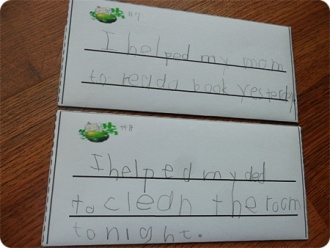 #7
I helped my mom
to read a book yesterday
#8
I helped my dad
to clean the room
tonight.